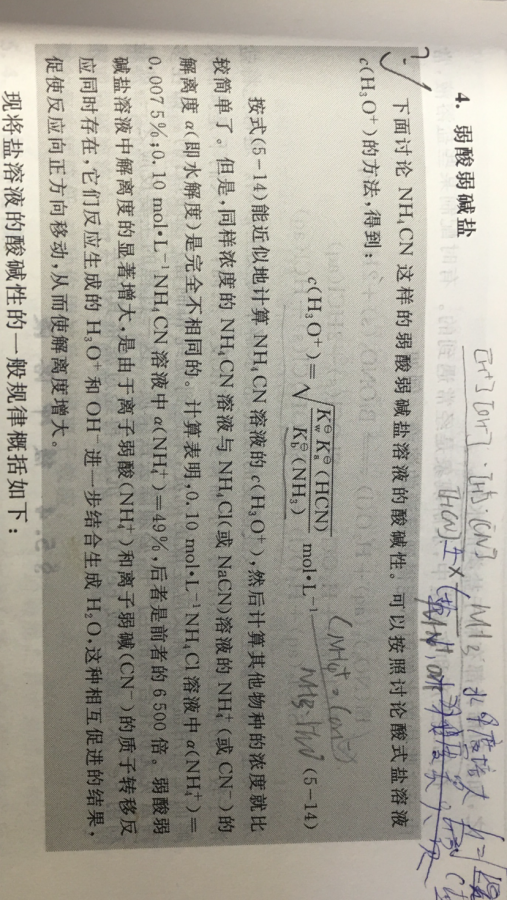 4. 弱酸弱碱盐
下面讨论 NH₄CN 这样的弱酸弱碱盐溶液的酸碱性。可以按照讨论酸式盐溶液
c(H₃O⁺)的方法,得到:
c(H₃O⁺)=√(K_w^⊖K_a^⊖(HCN)/K_b^⊖(NH₃)) mol·L⁻¹ (5-14)
按式(5-14)能近似地计算 NH₄CN 溶液的 c(H₃O⁺),然后计算其他物种的浓度就比
较简单了。但是,同样浓度的 NH₄CN 溶液与 NH₄Cl(或 NaCN)溶液的 NH₄⁺(或 CN⁻)的
解离度 α(即水解度)是完全不相同的。计算表明,0.10 mol·L⁻¹NH₄Cl 溶液中 α(NH₄⁺)=
0.0075%;0.10 mol·L⁻¹NH₄CN 溶液中 α(NH₄⁺)=49%,后者是前者的 6500 倍。弱酸弱
碱盐溶液中解离度的显著增大,是由于离子弱酸(NH₄⁺)和离子弱碱(CN⁻)的质子转移反
应同时存在,它们反应生成的 H₃O⁺和 OH⁻进一步结合生成 H₂O,这种相互促进的结果,
促使反应向正方向移动,从而使解离度增大。
现将盐溶液的酸碱性的一般规律概括如下: